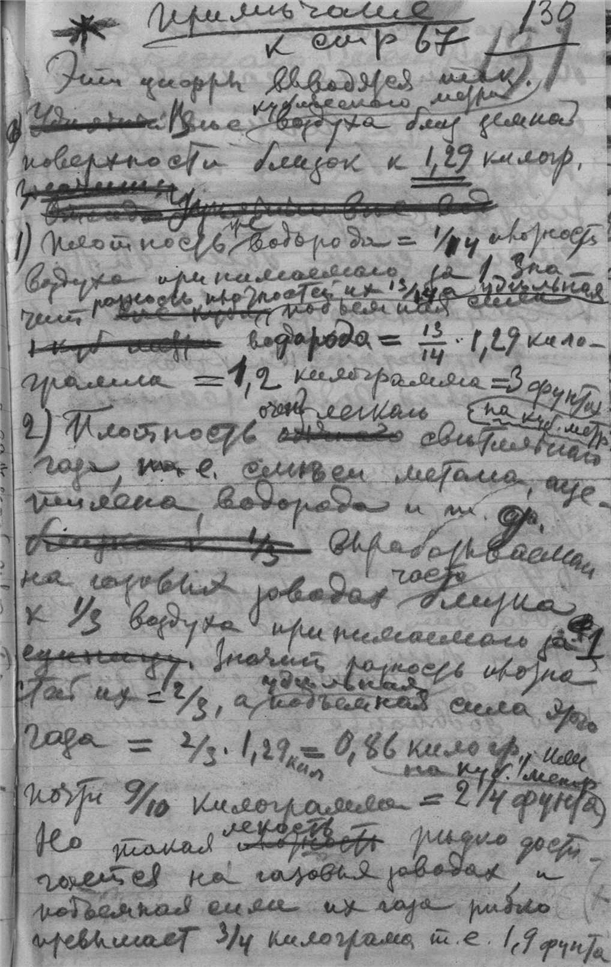 Примѣчание 130
к стр 67 131
Эти цифры выводятся так.
кубического метра
Вес воздуха близ земной
поверхности близок к 1,29 килогр.
1) Плотность водорода = 1/14 плотности
воздуха принимаемого за 1. Зна-
чит разность плотностей их 13/14, а удѣльная
подъемная сила
водорода = 13/14 · 1,29 кило-
грамма = 1,2 килограмма = 3 фунтах
на куб. метр
2) Плотность очень легкого светильного
газа, т. е. смѣси метана, аце-
тилена, водорода и т. д.
вырабатываемая
на газовых заводах часто близка
к 1/3 воздуха принимаемого за 1
единицу. Значит разность плотно-
стей их = 2/3, а удѣльная подъемная сила этого
газа = 2/3 · 1,29 кил = 0,86 килогр. или
на куб. метр
почти 9/10 килограмма = 2 1/4 фунта)
Но такая легкость рѣдко дости-
гается на газовых заводах и
подъемная сила их газа рѣдко
превышает 3/4 килограма т. е. 1,9 фунта